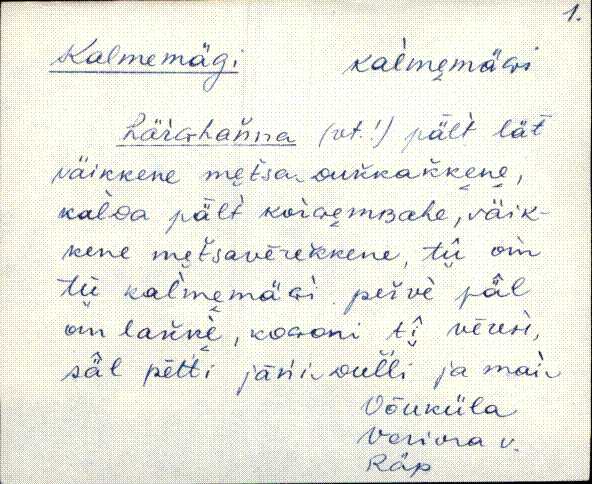 1.
Kalmemägi kaĺmemäGi
LäŕGhańńa (vt.!) päĺt lät
väikkene metsa-Dukkakkene,
kaĺDa päĺt koiGemBahe, väik-
kene metsavērekkene, tû om
tû kaĺmemäGi peŕvè päl
om lakkè, koGoni tî vēren,
säl pētti jāńi-Dulli ja mai-
Võuküla
Veriora v.
Räp